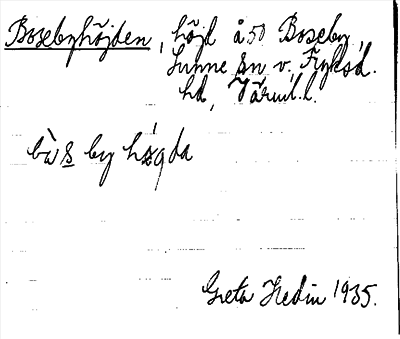 Bosebyhöjden, höjd å 50 Boseby,
Sunne sn v. Fryksd.
hd, Värml. l.
bòs by høgda
Greta Hedin 1935.